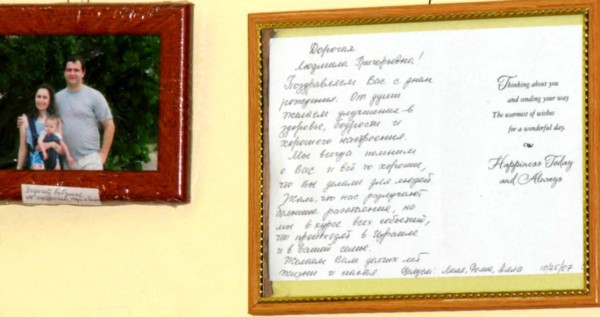 Дорогая
Людмила Григорьевна!
Поздравляем Вас с днем
рождения. От души
желаем улучшения в
здоровье, бодрости и
хорошего настроения.
Мы всегда помним
о Вас и всё то хорошее,
что Вы делали для людей
Жаль, что нас разлучают
большие расстояния, но
мы в курсе всех событий,
что происходят в Израиле
и в Вашей семье.
Желаем Вам долгих лет
жизни и
Целуем: Алла 10/25/07
Thinking about you
and sending your way
The warmest of wishes
for a wonderful day.
Happiness Today
and Always